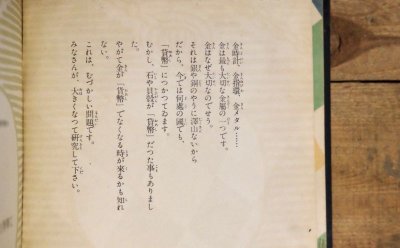 金時計、金指環、金メタル……
金は最も大切な金屬の一つです。
金はなぜ大切なのでせう。
それは銀や銅のやうに澤山ないから
だから、今では何處の國でも、
「貨幣」につかつてゐます。
むかし、石や貝殼が「貨幣」だつた事もありまし
た。
やがて金が「貨幣」でなくなる時が來るかも知れ
ない。
これは、むづかしい問題です。
みなさんが、大きくなつて研究して下さい。